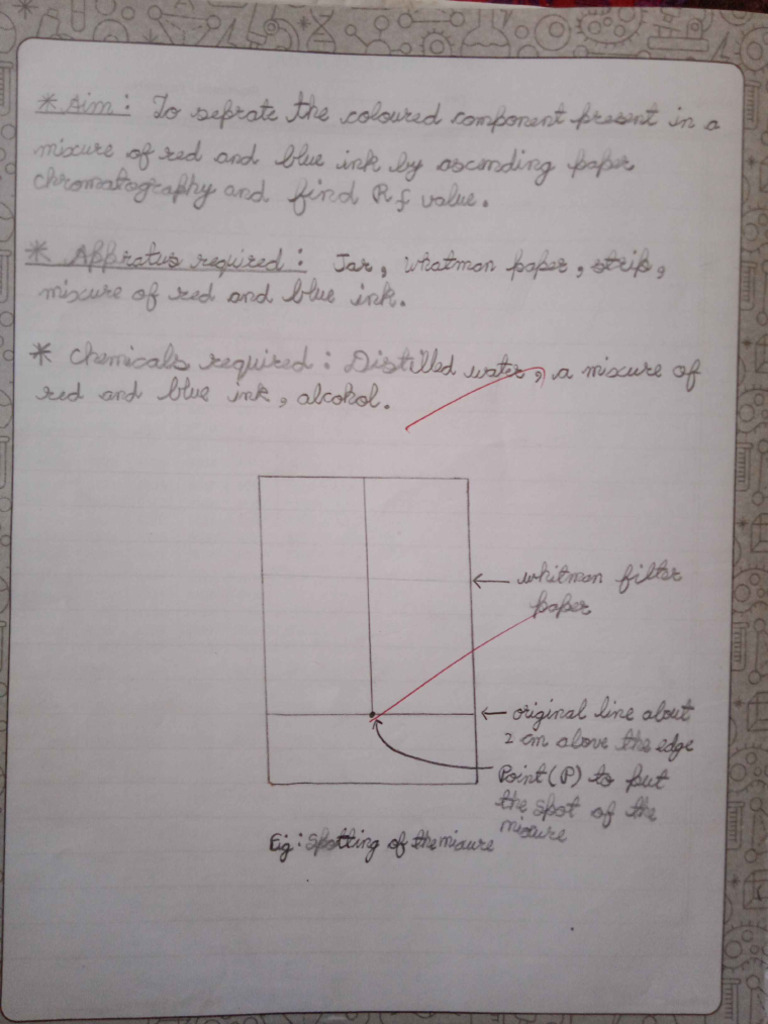 * Aim: To seprate the coloured component present in a
mixure of red and blue ink by ascending paper
chromatography and find Rf value.
* Appratus required: Jar, whatman paper, strip,
mixure of red and blue ink.
* chemicals required: Distilled water, a mixure of
red and blue ink, alcohol.
← whitman filter
paper
← original line about
2 cm above the edge
Point (P) to put
the spot of the
mixure
Fig: Spotting of the mixure